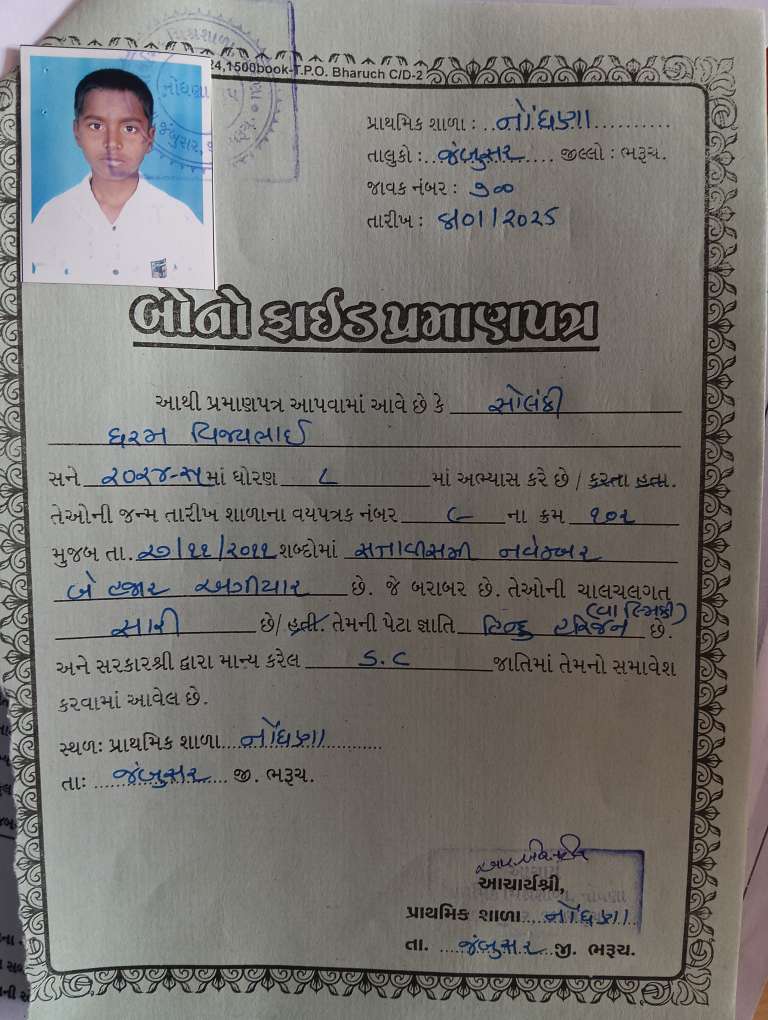 24,1500book-T.P.O. Bharuch C/D-2
પ્રાથમિક શાળા : નોંધણા
તાલુકો : જંબુસર જીલ્લો : ભરૂચ.
જાવક નંબર : ૭૦૦
તારીખ : ૪/૦1/૨૦૨૫
બોનો ફાઈડ પ્રમાણપત્ર
આથી પ્રમાણપત્ર આપવામાં આવે છે કે સોલંકી
ધરમ વિજયભાઈ
સને ૨૦૨૪-૨૫ માં ધોરણ ૮ માં અભ્યાસ કરે છે / કરતા હતા.
તેઓની જન્મ તારીખ શાળાના વયપત્રક નંબર ૯ ના ક્રમ ૧૦૨
મુજબ તા. ૨૭/૧૧/૨૦૧૧ શબ્દોમાં સત્તાવીસમી નવેમ્બર
બે હજાર અગીયાર છે. જે બરાબર છે. તેઓની ચાલચલગત
(વાલ્મિકી)
સારી છે/હતી. તેમની પેટા જ્ઞાતિ હિન્દુ હરિજન છે.
અને સરકારશ્રી દ્વારા માન્ય કરેલ S.C જાતિમાં તેમનો સમાવેશ
કરવામાં આવેલ છે.
સ્થળઃ પ્રાથમિક શાળા નોંધણા
તાઃ જંબુસર જી. ભરૂચ.
આચાર્યશ્રી,
પ્રાથમિક શાળા નોંધણા
તા. જંબુસર જી. ભરૂચ.